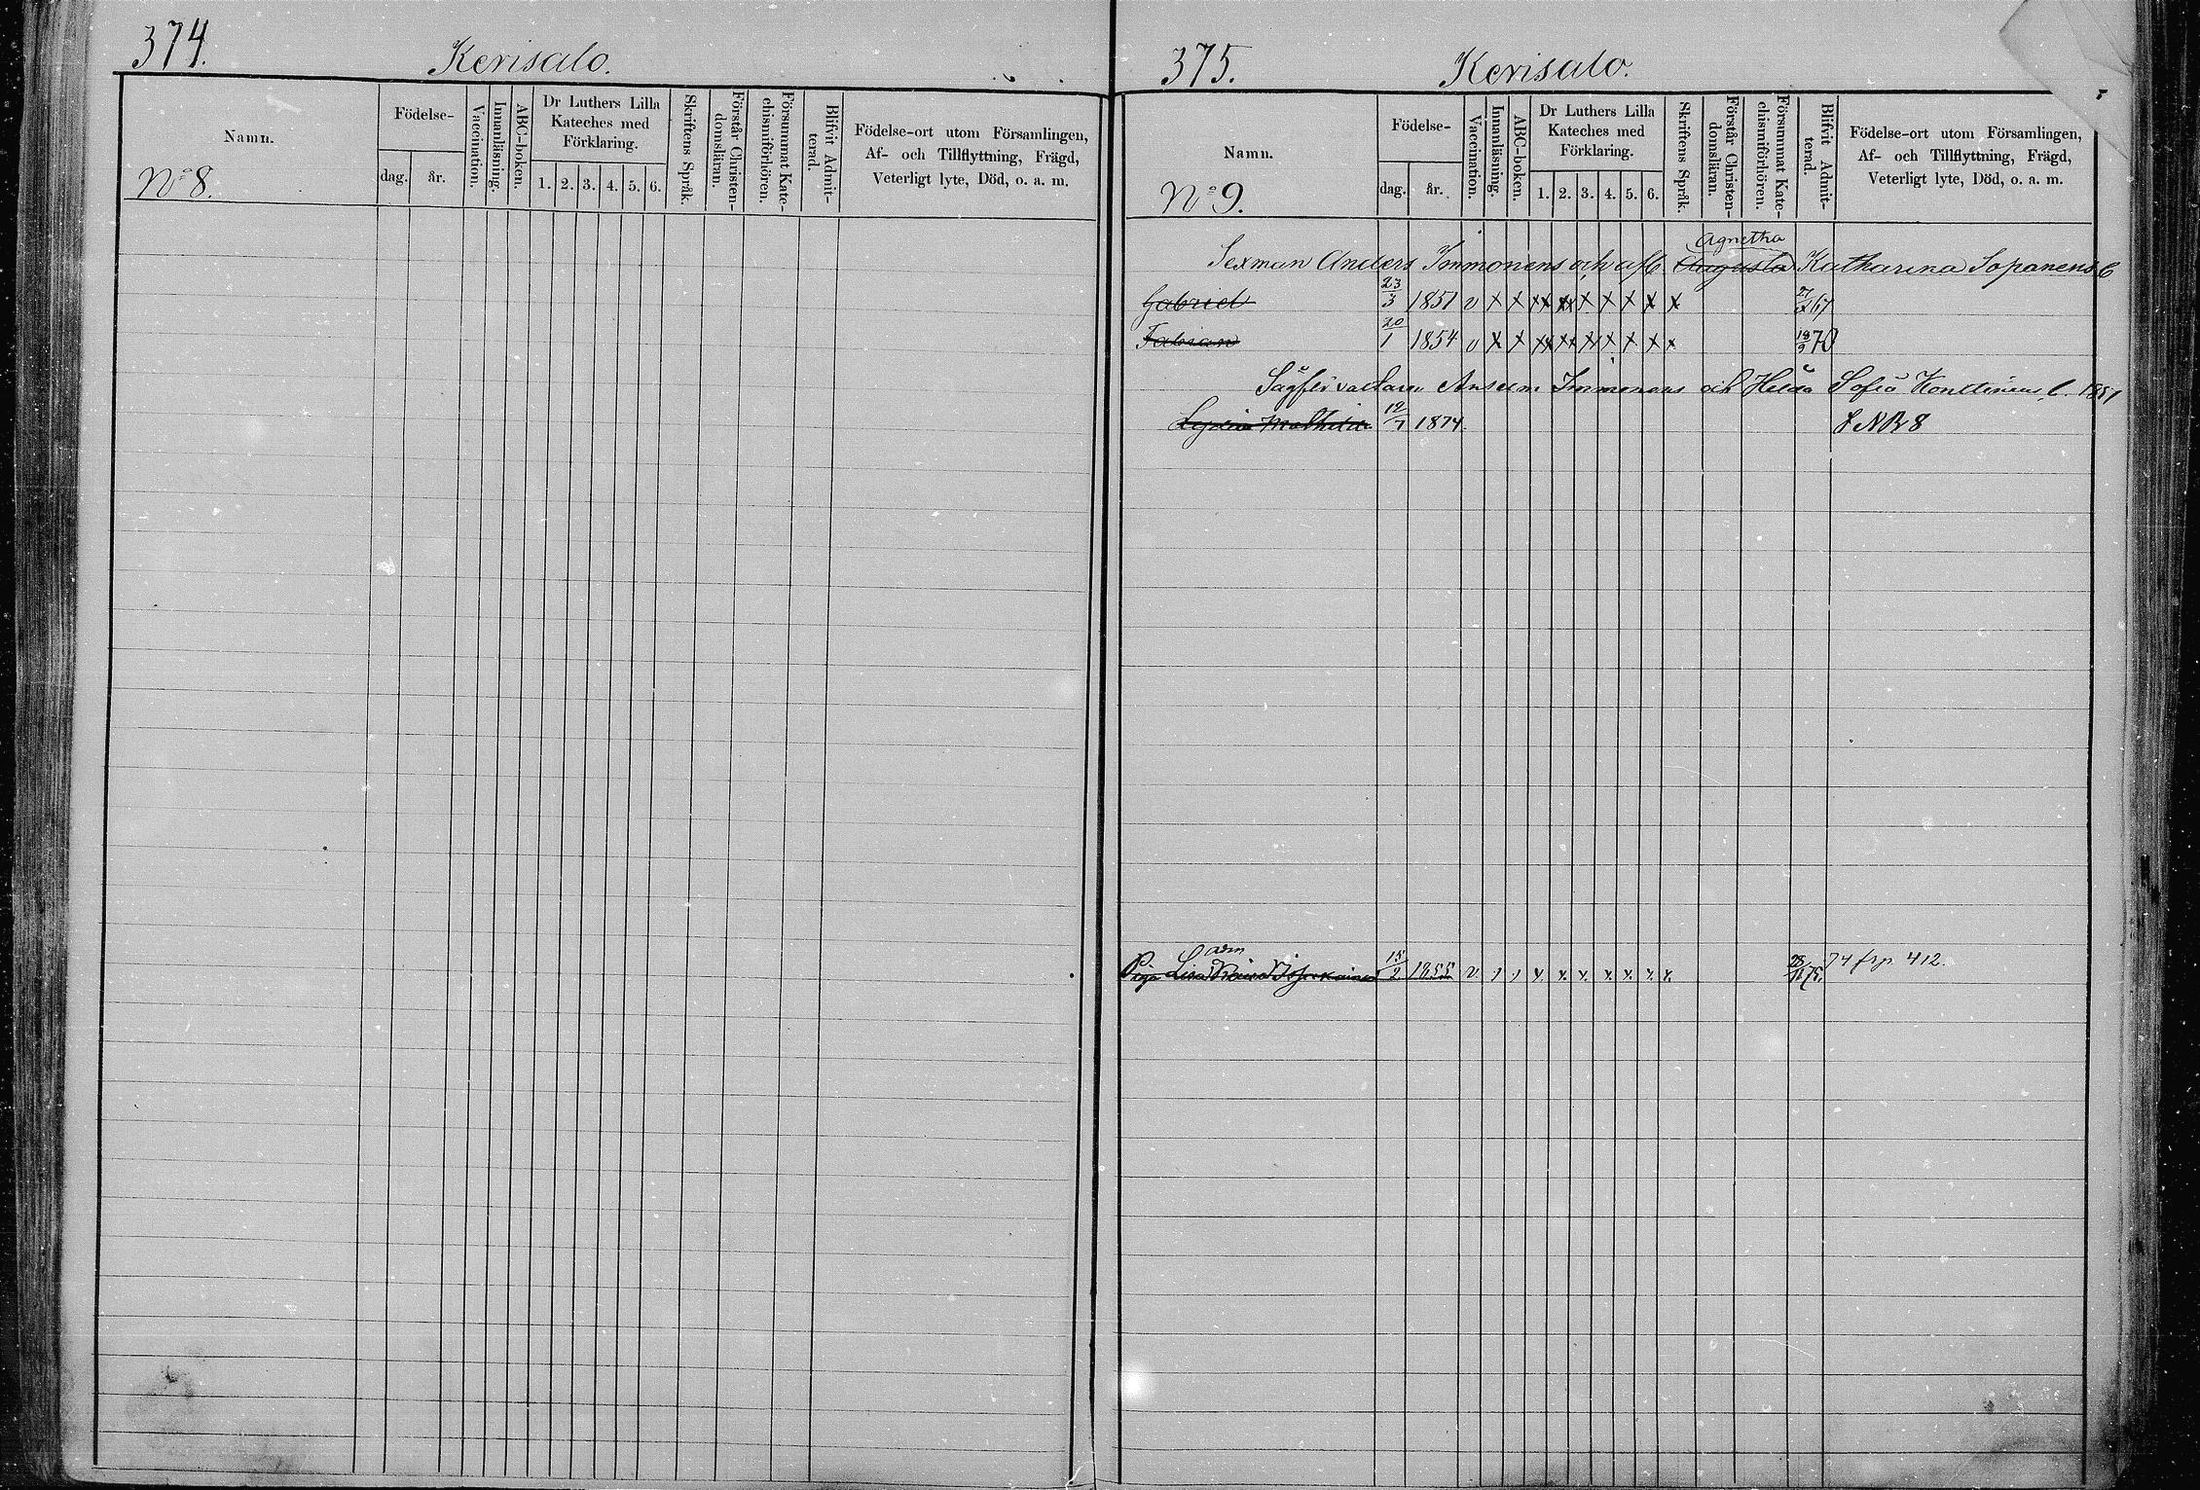 374.
Kerisalo.
Namn.
Födelse-
dag. år.
Vaccination.
Innanläsning.
ABC-boken.
Dr Luthers Lilla
Kateches med
Förklaring.
1. 2. 3. 4. 5. 6.
Skriftens Språk.
Förstår Christen-
domsläran.
Försummat Kate-
chismiförhören.
Blifvit Admit-
terad.
Födelse-ort utom Församlingen,
Af- och Tillflyttning, Frägd,
Veterligt lyte, Död, o. a. m.
No 8.
375.
Kerisalo.
Namn.
Födelse-
dag. år.
Vaccination.
Innanläsning.
ABC-boken.
Dr Luthers Lilla
Kateches med
Förklaring.
1. 2. 3. 4. 5. 6.
Skriftens Språk.
Förstår Christen-
domsläran.
Försummat Kate-
chismiförhören.
Blifvit Admit-
terad.
Födelse-ort utom Församlingen,
Af- och Tillflyttning, Frägd,
Veterligt lyte, Död, o. a. m.
No 9.
Agnetha
Sexman Anders Immonens och afl. Augusta Katharina Sopanens b
Gabriel 23/3 1851 v x x xx xx x x x x x 67
Fabian 20/1 1854 v x x xx xx x x x x x 18/9 70
Sågförvaltaren Anselm Immonens och Hilda Sofia Konttinens b. 1851
Mathilda 12/7 1874 f NB 8
Piga Lisa 15/2 1855 v x x x x x x x 75. 74 frp 412.